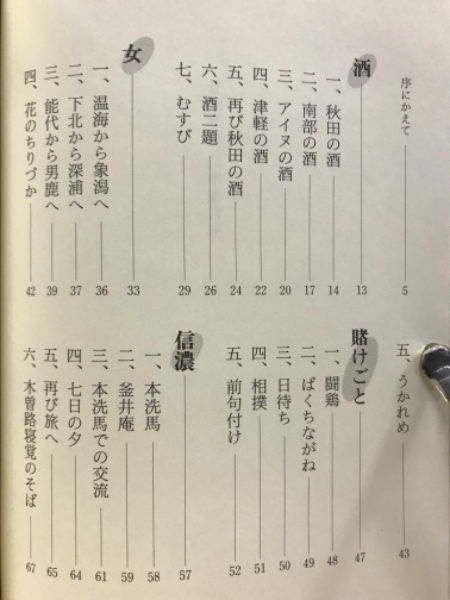 序にかえて 5
酒 13
一、秋田の酒 14
二、南部の酒 17
三、アイヌの酒 20
四、津軽の酒 22
五、再び秋田の酒 24
六、酒二題 26
七、むすび 29
女 33
一、温海から象潟へ 36
二、下北から深浦へ 37
三、能代から男鹿へ 39
四、花のちりづか 42
五、うかれめ 43
賭けごと 47
一、闘鶏 48
二、ばくちながね 49
三、日待ち 50
四、相撲 51
五、前句付け 52
信濃 57
一、本洗馬 58
二、釜井庵 59
三、本洗馬での交流 61
四、七日の夕 64
五、再び旅へ 65
六、木曽路寝覚のそば 67